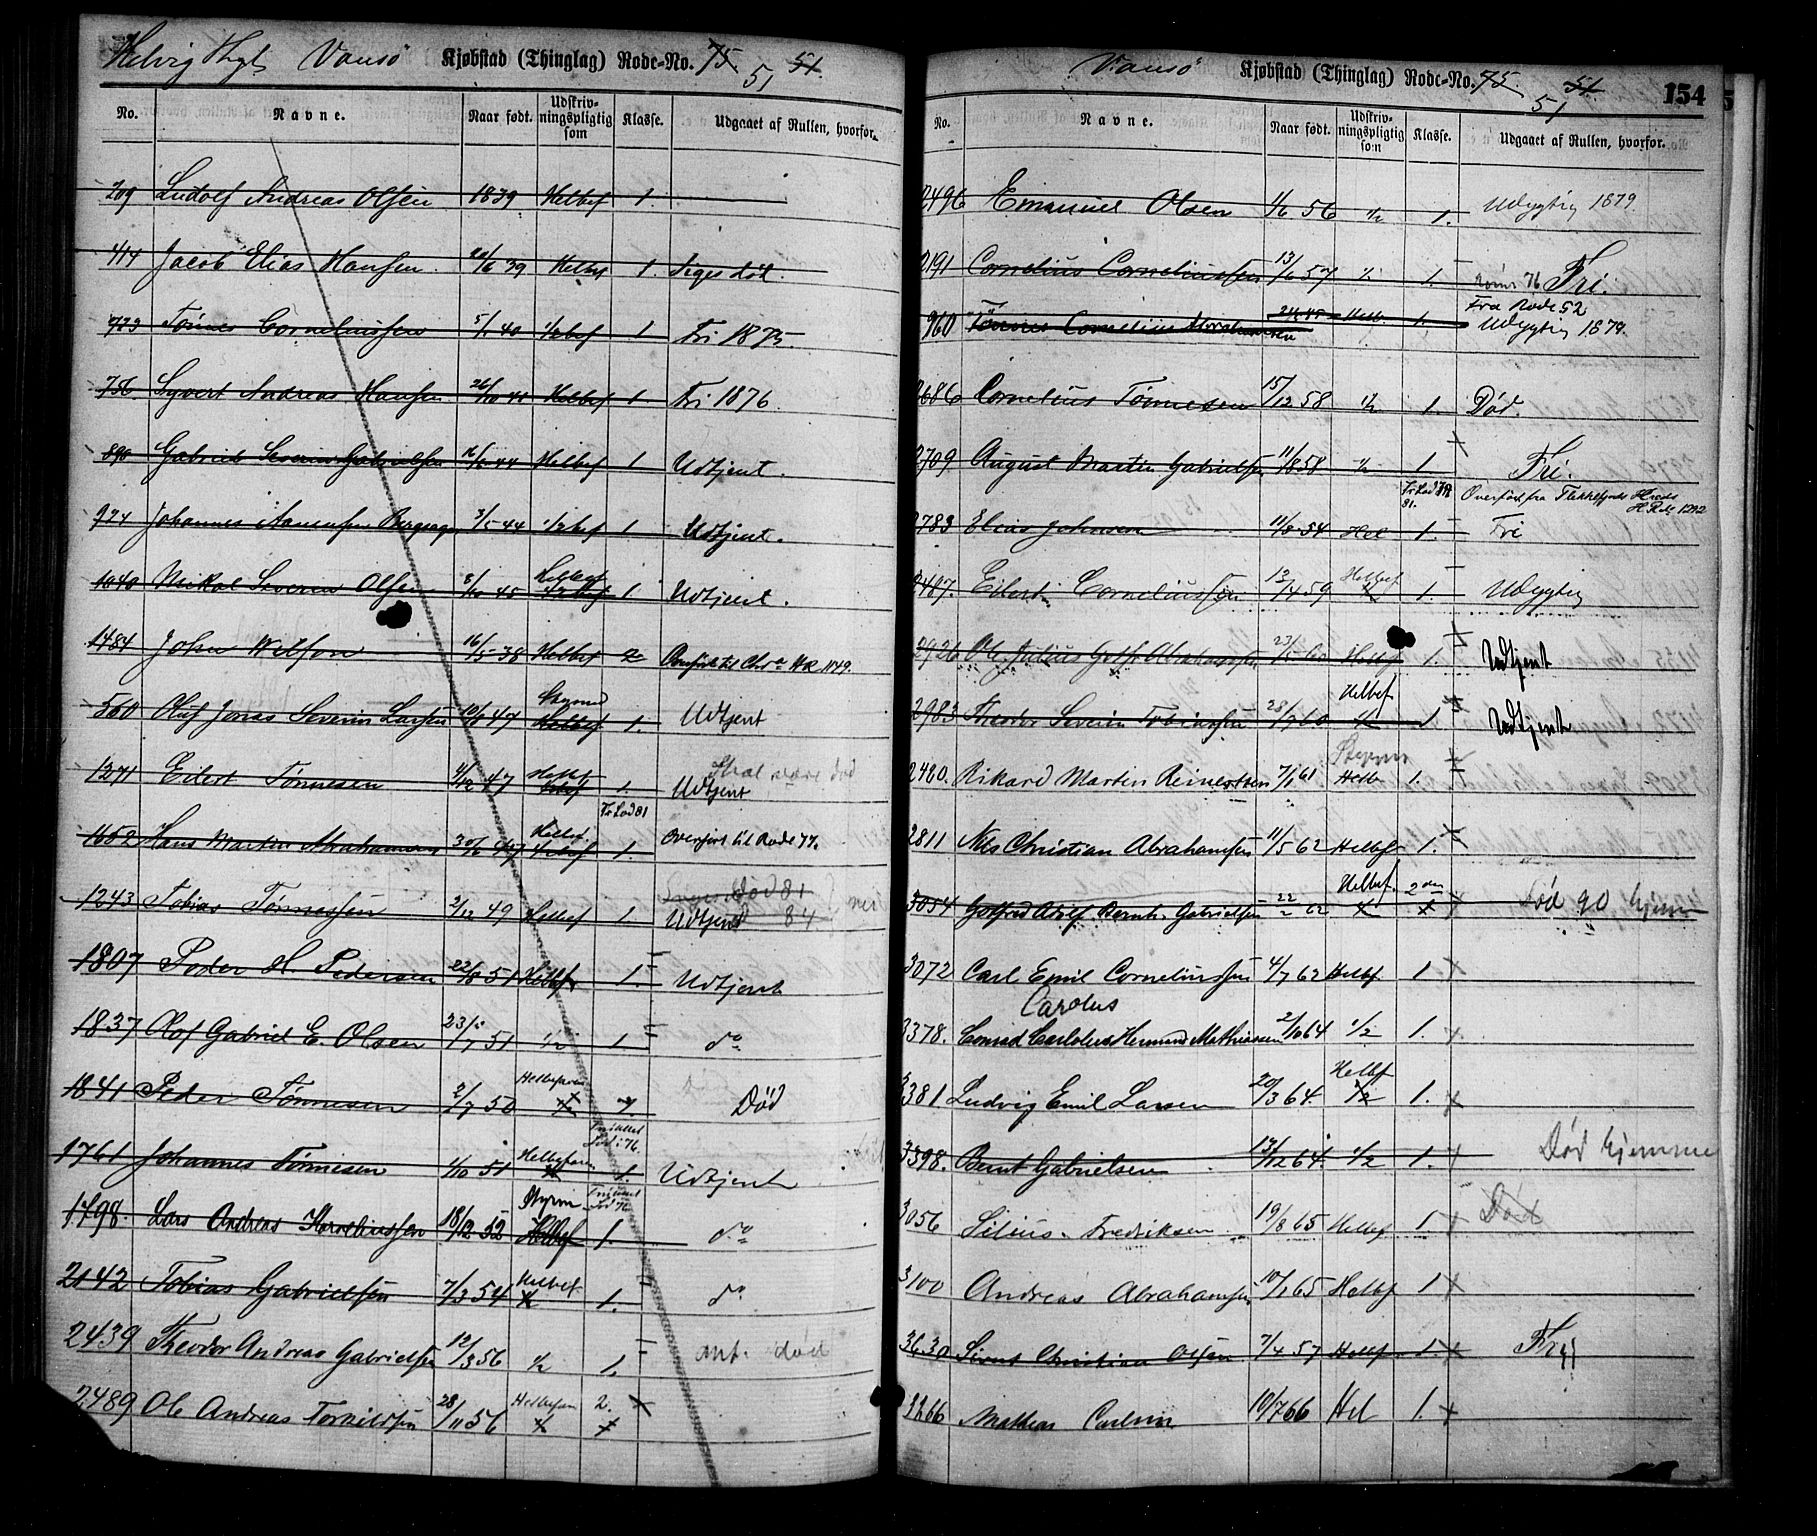 Helvig Vansø Kjøbstad (Thinglag) Rode-No. 75 51 51
No. Navne. Naar født. Udskriv-ningspligtig som Klasse. Udgaaet af Rullen, hvorfor.
209 Ludolf Andreas Olsen 1839 Helbef 1.
414 Jacob Elias Hansen 39 Helbef 1. Siges død.
Tönnes Corneliussen 5/1 40 1/2bef 1 Fri 1875
756 Syvert Andreas Hansen 26/10 41 Helbef 1 Fri 1876
890 Gabriel Severin Gabrielsen 44 Helbef 1 Udtjent.
924 Johannes Aanensen 3/5 44 1/2bef 1 Udtjent.
1040 Mikal Severin Olsen 45 Helbef 1/2bef 1 Udtjent.
1484 John Wilson 16/5 38 Helbef 2 Overført til HR 1179.
560 Oluf Jonas Severin Larsen 47 Styrmd Helbef 1. Udtjent
1271 Eilert Tønnesen 4/12 47 Helbef 1. Skal være død Udtjent
1652 Hans Martin Abrahamsen 47 Helbef 1. Fr Lod 81 Overført til Rode 77.
1243 Tobias Tønnessen 2/12 49 Helbef 1 Død 81 Udtjent 84
1807 Peder H. Pedersen 22/8 51 Helbef 1. Udtjent
1837 Olof Gabriel E. Olsen 23/7 51 1/2 1. do
1841 Peder Tønnesen 2/7 50 Helbefaren Død
1761 Johannes Tønnesen 4/10 51 Helbefaren 1. Frikaldt Lod: 76 Udtjent
1798. Lars Andreas Korneliussen 18/12 52 Styrm Helbef 1. Lod 76 do
2142 Tobias Gabrielsen 7/3 54 Helbef 1. do
2439 Theodor Andreas Gabrielsen 12/3 56 1/2 1. ant. død
2489 Ole Andreas Torkildsen 28/11 56 Helbefaren 2.
Vansø Kjøbstad (Thinglag) Rode-No. 75. 51 51 154
No. Navne. Naar født. Udskriv-ningspligtig som Klasse. Udgaaet af Rullen, hvorfor.
2496 Emanuel Olsen 1/6 56 1/2 1. Udygtig 1879
2191 Cornelius Corneliussen 13/6 57 1/2 1. 76 Fri.
960 Tönnes Cornelius Abrahamsen 45 Helb. 1. Fra Rode 52 Udygtig 1879.
2686 Cornelius Tönnesen 15/12 58 1/2 1. Død.
2709 August Martin Gabrielsen 11/8 58 1/2 1 Fri.
2783 Elias Johnsen 11/8 54 Hel 1. Fr Lod 81. Overført fra Flekkefjords HRd. 1292 Fri
2487. Eilert Corneliussen 13/4 59 Helbef 1. Udygtig
2926 Ole Julius Abrahamsen 60 Helbf 1. Udtjent
2983 Theodor Severin Tobiassen 28/7 60 Helbef 1 Udtjent
2480. Rikard Martin Reinertsen 7/1 61 Styrm Helb 1.
2811 Nils Christian Abrahamsen 11/5 62 Helbef 1.
3054 Gotfred Adolf Bernh. Gabrielsen 22/2 62 Helbef 2den Død 90 hjemme
3072 Carl Emil Corneliussen 4/7 62 Helbf 1
Carolus
3378. Conrad Carlolus Hermand Mathiassen 2/10 64 1/2 1.
3381 Ludvig Emil Larsen 20/3 64. Helbf 1/2 1.
3398. Bernt Gabrielsen 13/12 64. 1/2 1. Død hjemme
3056 Silius Fredriksen 19/8 65 Helbef 1 Død
3100 Andreas Abrahamsen 10/1 65 Helbf 1
3630 Sivert Christian Olsen 7/4 57 Helbf 1. Fri
3266 Mathias Carlsen 10/7 66 Hel 1.